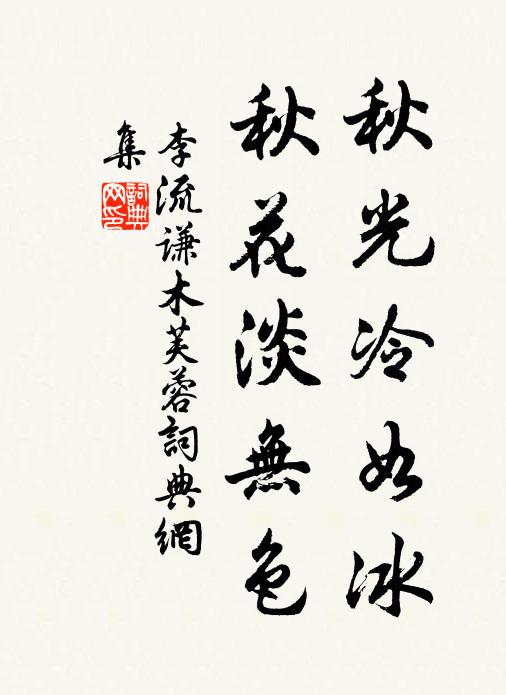 秋光冷如冰
秋花淡無色
李流謙木芙蓉詞典網
集
詞典
网印